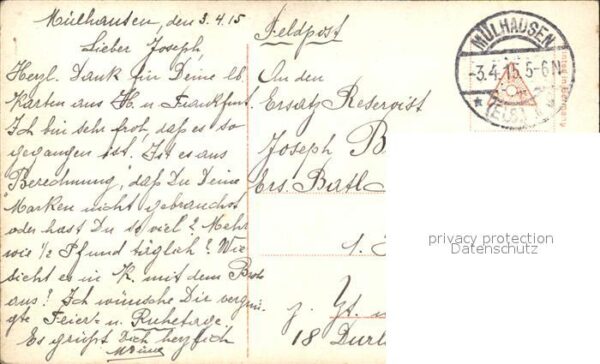 Mülhausen, den 3.4.15
Lieber Joseph
Herzl. Dank für Deine lb.
Karten aus H. u. Frankfurt.
Ich bin sehr froh, daß es so
gegangen ist. Ist es aus
Berechnung, daß Du Deine
Marken nicht gebrauchst
oder hast Du so viel? Mehr
wie ½ Pfund täglich? Wie
sieht es in K. mit dem Brot
aus? Ich wünsche Dir vergnü-
gte Feier- u. Ruhetage.
Es grüßt Dich herzlich
Feldpost
An den
Ersatz Reservist
Joseph B
Ers. Batl.
1.
z. Zt.
18 Durl
MÜLHAUSEN
-3.4.15.5-6N
* (ELS.)
privacy protection
Datenschutz